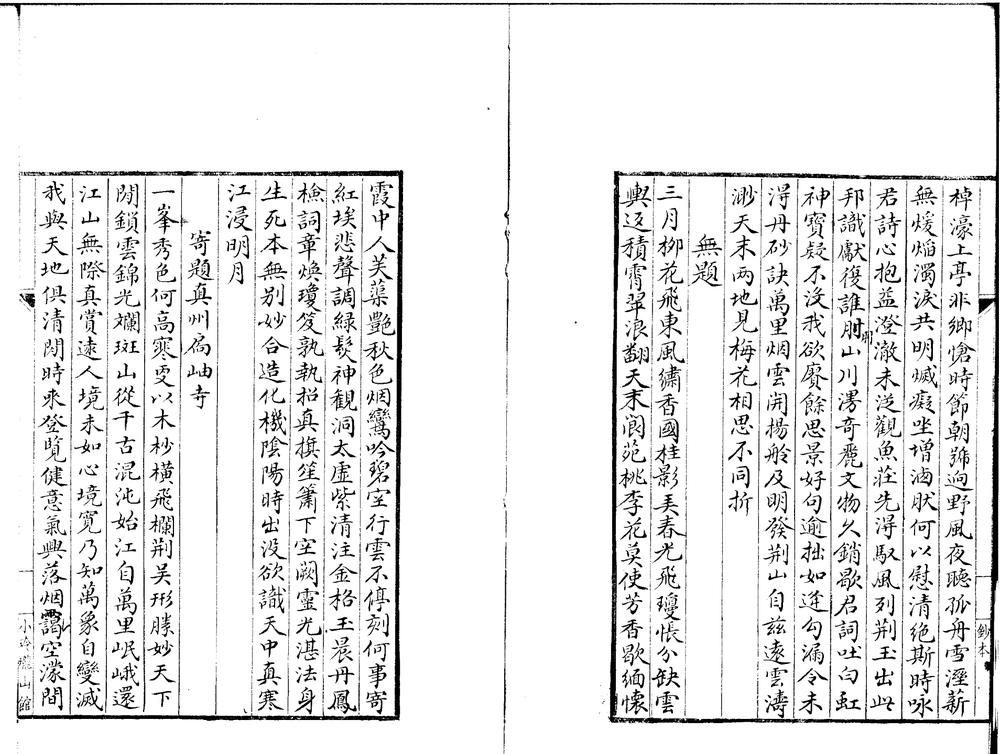 棹濠上亭非鄉愴時節朝號逈野風夜聽孤舟雪溼薪
無煖焰濁淚共明滅癡坐增滷肰何以慰清絶斯時咏
君詩心抱益澄澈未泛觀魚莊先淂馭風列荆玉出此
邦識獻復誰刖山川淂奇麗文物久銷歇君詞吐白虹
神寶疑不没我欲賡餘思景好句逾拙如逢勾漏令未
淂丹砂訣萬里烟雲開揚舲及明發荆山自兹遠雲濤
渺天末两地見梅花相思不同折
無題
三月柳花飛東風繡香國桂影美春光飛瓊悵分缺雲
輿返積霄翠浪翻天末閬苑桃李花莫使芳香歇緬懷
霞中人芙蕖艷秋色烟鸞吟碧空行雲不停刻何事寄
紅埃悲聲調緑髮神觀洞太虚紫清注金格玉晨丹鳳
檢詞章煥瓊笈孰執招真旗笙簫下空闕靈光湛法身
生死本無别妙合造化機陰陽時出没欲識天中真寒
江浸明月
寄題真州扄岫寺
一峯秀色何高寒更以木杪横飛欄荆吴形勝妙天下
閒鎖雲錦光斕斑山從千古混沌始江自萬里岷峨還
江山無際真賞遠人境未如心境寛乃知萬象自變滅
我與天地俱清閒時來登覧健意氣興落烟靄空濛間
鈔本
小玲瓏山館